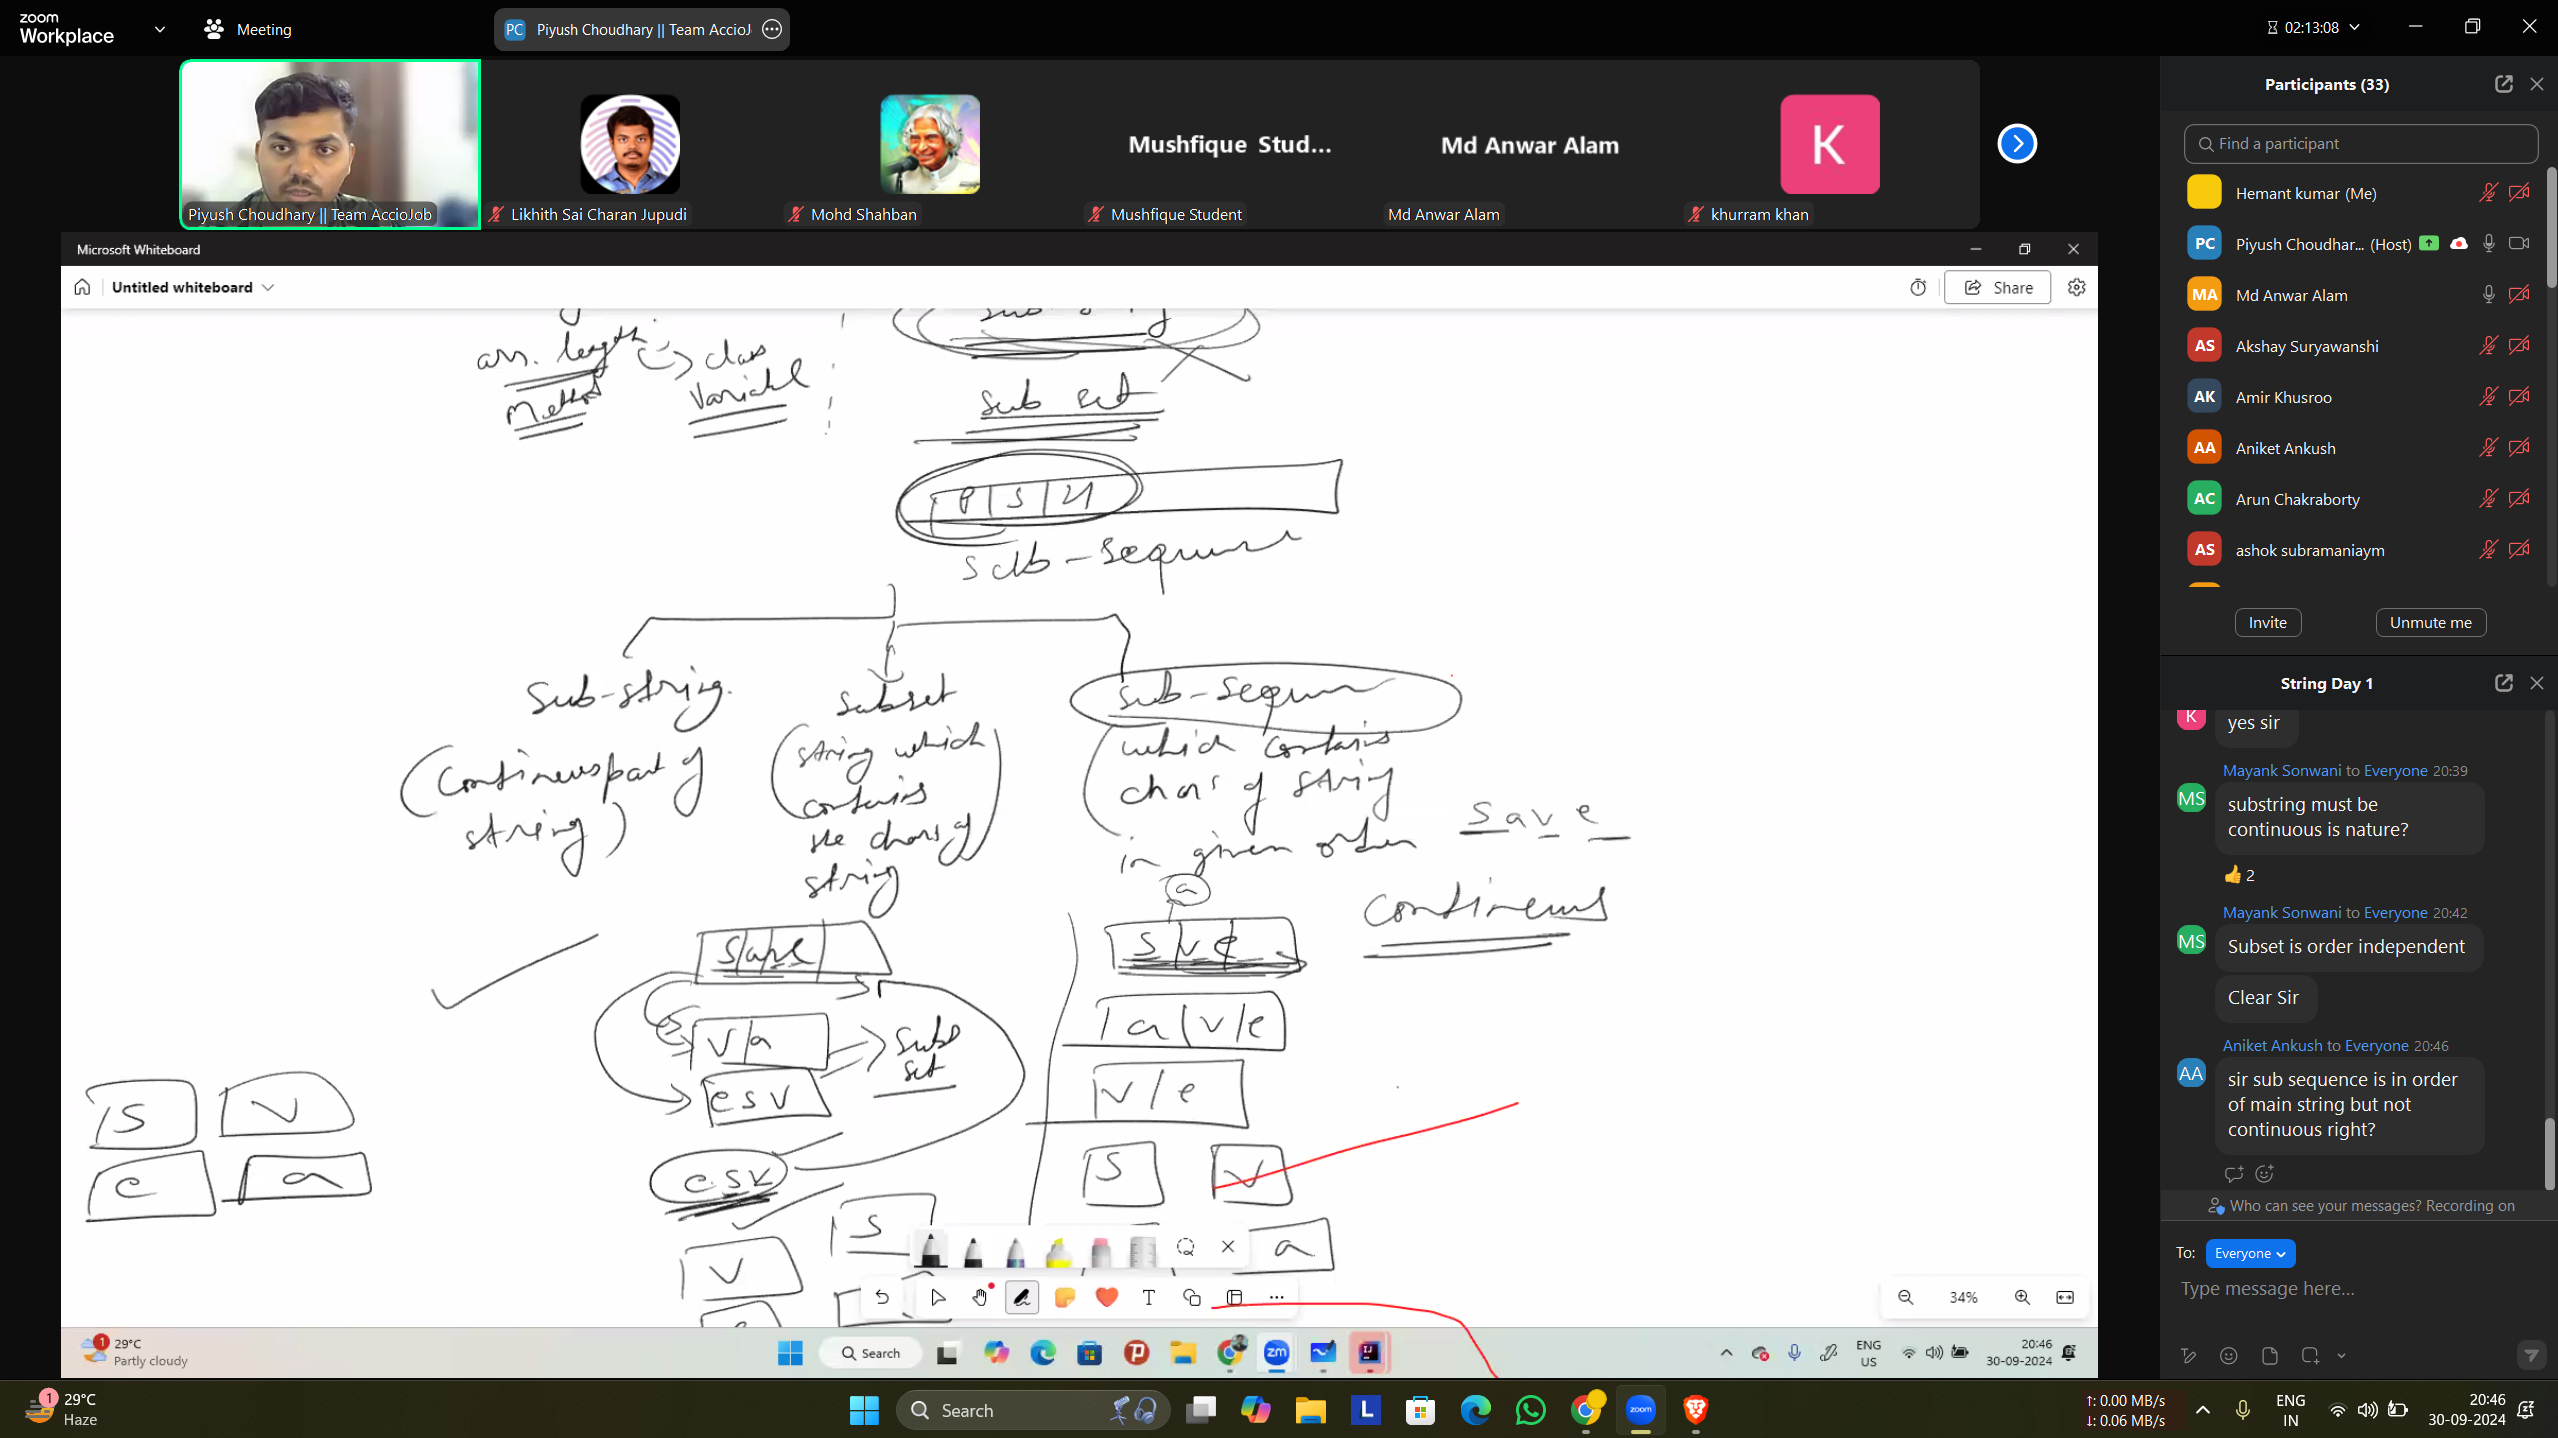 zoom
Workplace
Meeting
PC Piyush Choudhary || Team AccioJ
02:13:08
Piyush Choudhary || Team AccioJob
Likhith Sai Charan Jupudi
Mohd Shahban
Mushfique Stud...
Mushfique Student
Md Anwar Alam
Md Anwar Alam
K
khurram khan
Microsoft Whiteboard
Untitled whiteboard
Share
arr. length
class
Variable
Method
Sub set
P S U
Sub-Sequence
Sub-string
(Continous part of
string)
Subset
(string which
contains
the chars of
string)
Sub-Sequen
(which contains
chars of string
in given order
save
a
Continous
s/a/v/e
s v e
v/a
Sub
set
e s v
e s v
a/v/e
v/e
s v
a
s
v
s v
e a
34%
29°C
Partly cloudy
Search
ENG
US
20:46
30-09-2024
Participants (33)
Find a participant
Hemant kumar (Me)
PC Piyush Choudhar... (Host)
MA Md Anwar Alam
AS Akshay Suryawanshi
AK Amir Khusroo
AA Aniket Ankush
AC Arun Chakraborty
AS ashok subramaniaym
Invite
Unmute me
String Day 1
K yes sir
Mayank Sonwani to Everyone 20:39
MS substring must be
continuous is nature?
👍 2
Mayank Sonwani to Everyone 20:42
MS Subset is order independent
Clear Sir
Aniket Ankush to Everyone 20:46
AA sir sub sequence is in order
of main string but not
continuous right?
Who can see your messages? Recording on
To: Everyone
Type message here...
1 29°C
Haze
Search
zoom
↑: 0.00 MB/s
↓: 0.06 MB/s
ENG
IN
20:46
30-09-2024